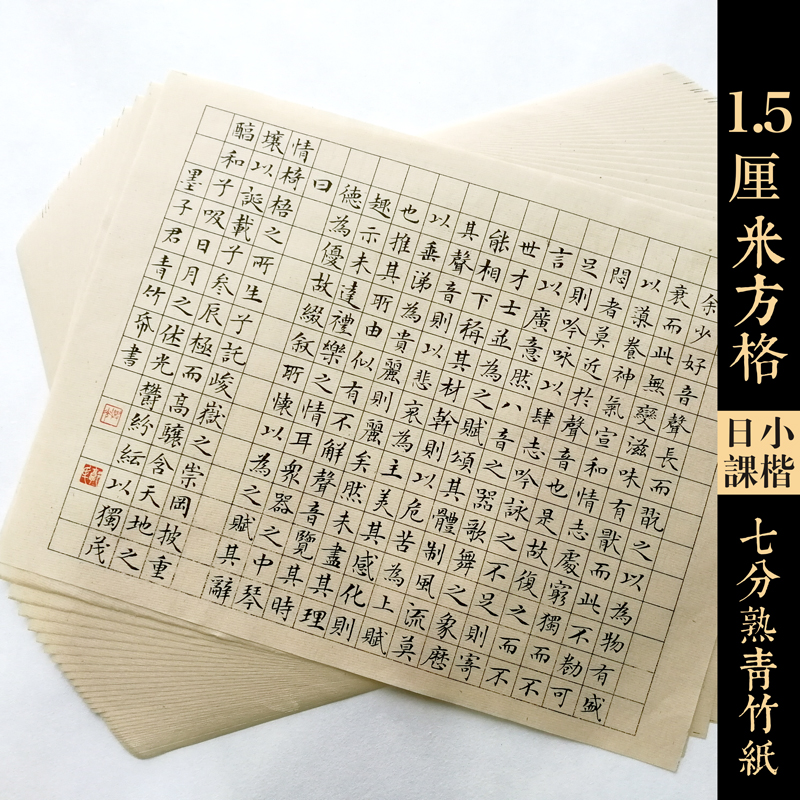 1.5厘米方格
小楷日課
七分熟青竹紙
余少好音聲長而翫之以為物有盛
衰而此無變滋味有猒而此不勌可
以導養神氣宣和情志處窮獨而不
悶者莫近於聲音也是故復之而不
足則吟咏以肆志吟詠之不足則寄
言以廣意然八音之器歌舞之象歷
世才士並為之賦頌其體制風流莫
能相下稱其材幹則以危苦為上賦
其聲音則以悲哀為主美其感化則
以垂涕為貴麗則麗矣然未盡其理
也推其所由似有不解聲音覽其時
趣示未達禮樂之情耳衆器之中琴
德為優故綴敘所懷以為之賦其辭
曰
情椅梧之所生兮託峻嶽之崇岡披重
壤以誕載兮參辰極而高驤含天地之
醕和兮吸日月之休光鬱紛紜以獨茂
墨子君青竹帋書